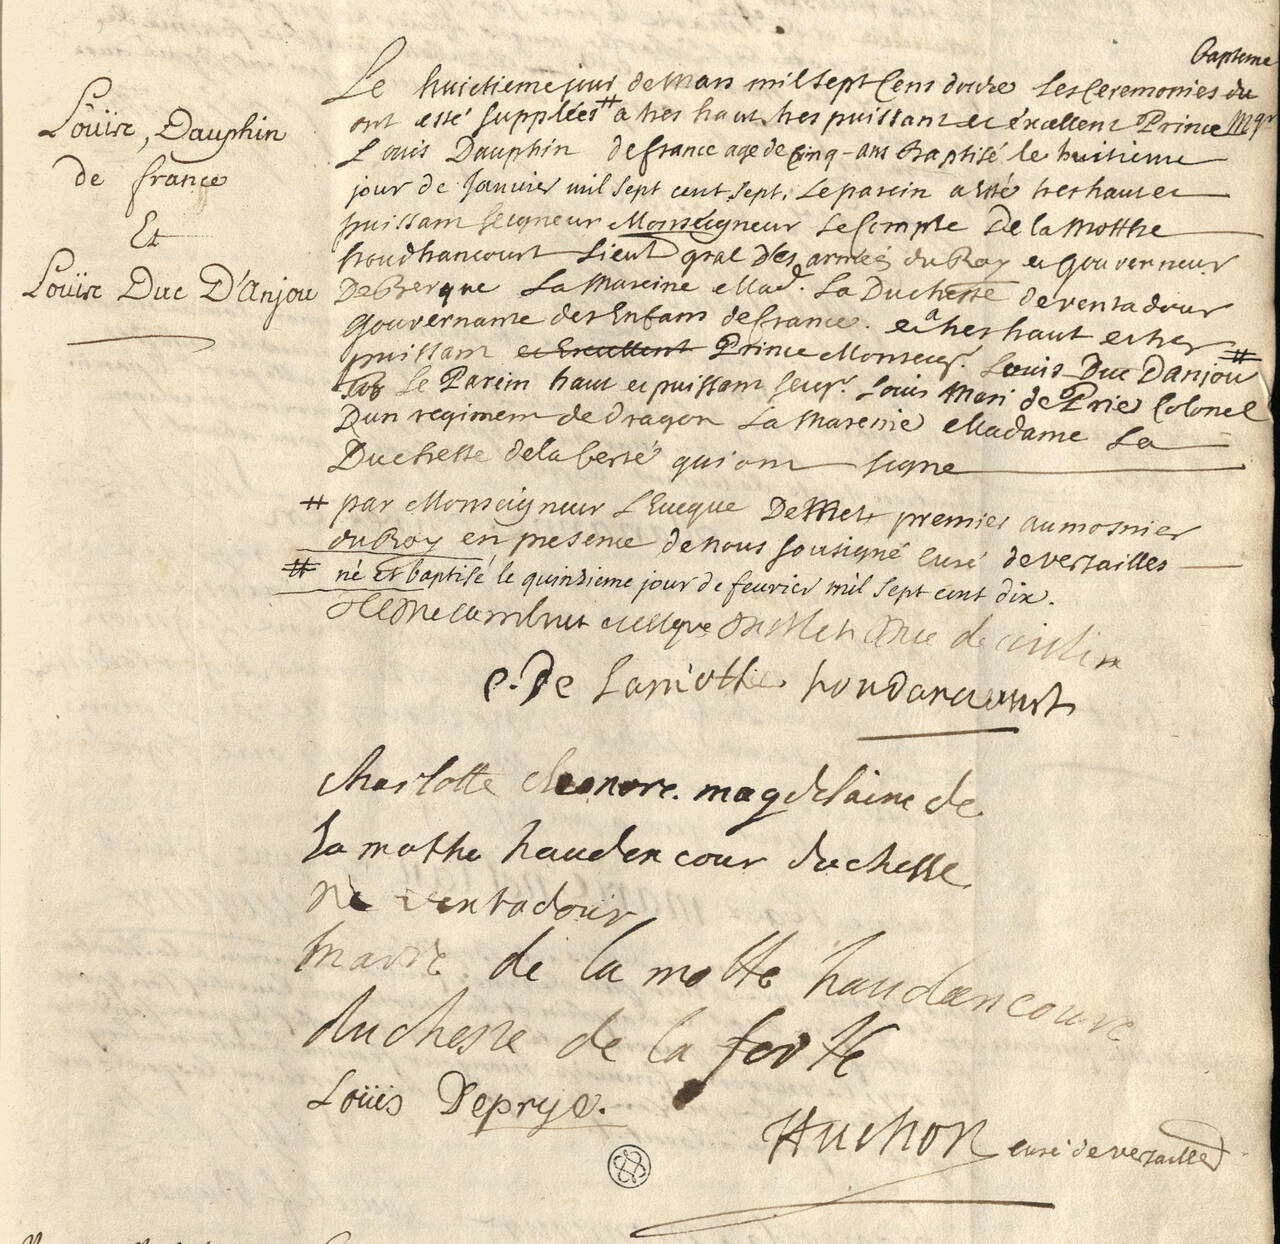 Loüis, Dauphin
de france
Et
Loüis Duc D'Anjou
bapteme
Le huictieme jour de Mars mil sept Cens douze Les Ceremonies du
ont esté Suppleés # a tres haut tres puissant et excellent Prince Mgr
Louis Dauphin de france age de Cinq ans Baptisé le huitieme
jour de Janvier mil sept cent sept. Le parein a esté tres haut et
puissam seigneur Monseigneur Le Compte De la Motthe
houdhancourt Lieut gnal Des armées du Roy et gouverneur
De Bergue La Mareine Mad. La Duchesse de ventadour
Gouvername des Enfans de france. et a tres haut et tres
puissam et Excellent Prince Monseigr. Louis Duc Danjou #
Le Parein haut et puissam seigr. Louis Mari de Prie Colonel
Dun regiment de dragon La Mareine Madame La
Duchesse de la ferté qui ont signe
# par Monseigneur L'Eveque De Metz premier aumosnier
du Roy en presence de nous sousigné curé de versailles
# né et baptisé le quinzieme jour de fevrier mil sept cent dix.
evesque de Metz Duc de
C. De Lamothe houdancourt
charlotte eleonore magdelaine de
La mothe haudencour duchesse
de ventadour
marie de la motte haudencourt
duchesse de la ferte
Loüis De prye.
Huchon curé de versailles